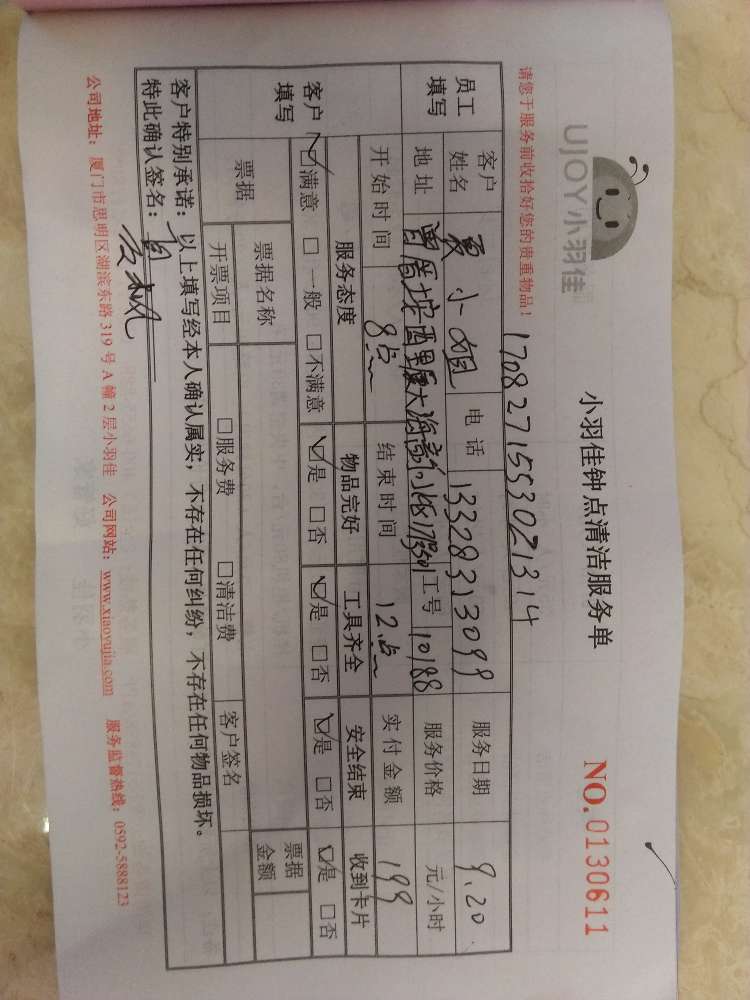 UJOY小羽佳
小羽佳钟点清洁服务单
NO.0130611
请您于服务前收拾好您的贵重物品！
1708271553021314
员工填写
客户姓名 小姐 电话 13328313099 服务日期 9.20
地址 工号 10188 服务价格 元/小时
开始时间 8点 结束时间 12点 实付金额 199
客户填写
服务态度 物品完好 工具齐全 安全结束 收到卡片
☑满意 □一般 □不满意 ☑是 □否 ☑是 □否 ☑是 □否 ☑是 □否
票据 票据名称 票据金额
开票项目 □服务费 □清洁费 客户签名
客户特别承诺：以上填写经本人确认属实，不存在任何纠纷，不存在任何物品损坏。
特此确认签名：
公司地址：厦门市思明区湖滨东路 319 号 A 幢 2 层小羽佳 公司网站：www.xiaoyujia.com 服务监督热线：0592-5888123